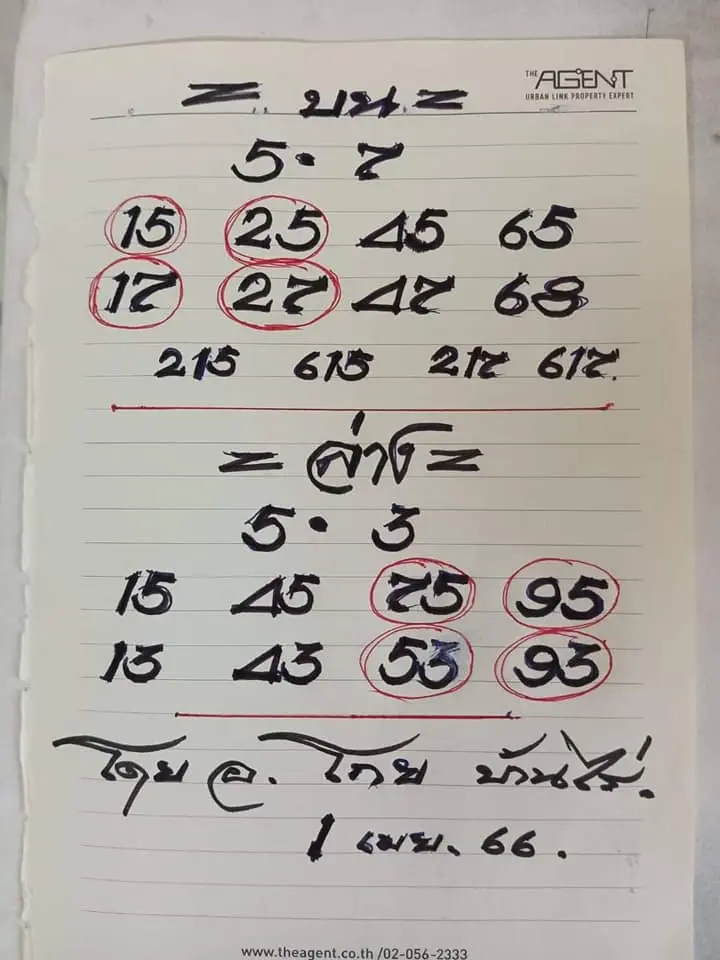 THE AGENT
URBAN LINK PROPERTY EXPERT
= บน =
5 · 7
15 25 45 65
17 27 47 68
215 615 217 617.
= ล่าง =
5 · 3
15 45 75 95
13 43 53 93
โดย อ. โกย บ้านไร่.
1 เมย. 66.
www.theagent.co.th /02-056-2333